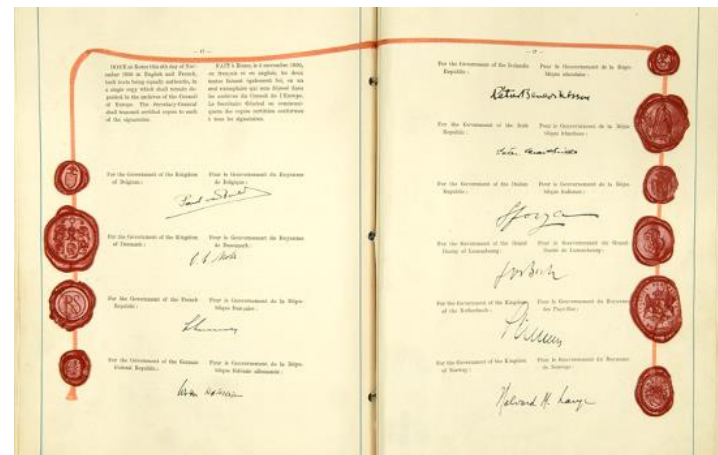 — 17 —
DONE at Rome this 4th day of Nov-
ember 1950 in English and French,
both texts being equally authentic, in
a single copy which shall remain de-
posited in the archives of the Council
of Europe. The Secretary-General
shall transmit certified copies to each
of the signatories.
FAIT à Rome, le 4 novembre 1950,
en français et en anglais, les deux
textes faisant également foi, en un
seul exemplaire qui sera déposé dans
les archives du Conseil de l'Europe.
Le Secrétaire Général en communi-
quera des copies certifiées conformes
à tous les signataires.
For the Government of the Kingdom
of Belgium :
Pour le Gouvernement du Royaume
de Belgique :
For the Government of the Kingdom
of Denmark :
Pour le Gouvernement du Royaume
de Danemark :
For the Government of the French
Republic :
Pour le Gouvernement de la Répu-
blique française :
RS
For the Government of the German
Federal Republic :
Pour le Gouvernement de la Répu-
blique fédérale allemande :
For the Government of the Icelandic
Republic :
Pour le Gouvernement de la Répu-
blique islandaise :
For the Government of the Irish
Republic :
Pour le Gouvernement de la Répu-
blique irlandaise :
For the Government of the Italian
Republic :
Pour le Gouvernement de la Répu-
blique italienne :
Sforza
For the Government of the Grand
Duchy of Luxembourg :
Pour le Gouvernement du Grand
Duché de Luxembourg :
Jos Bech
For the Government of the Kingdom
of the Netherlands :
Pour le Gouvernement du Royaume
des Pays-Bas :
For the Government of the Kingdom
of Norway :
Pour le Gouvernement du Royaume
de Norvège :
Halvard M. Lange